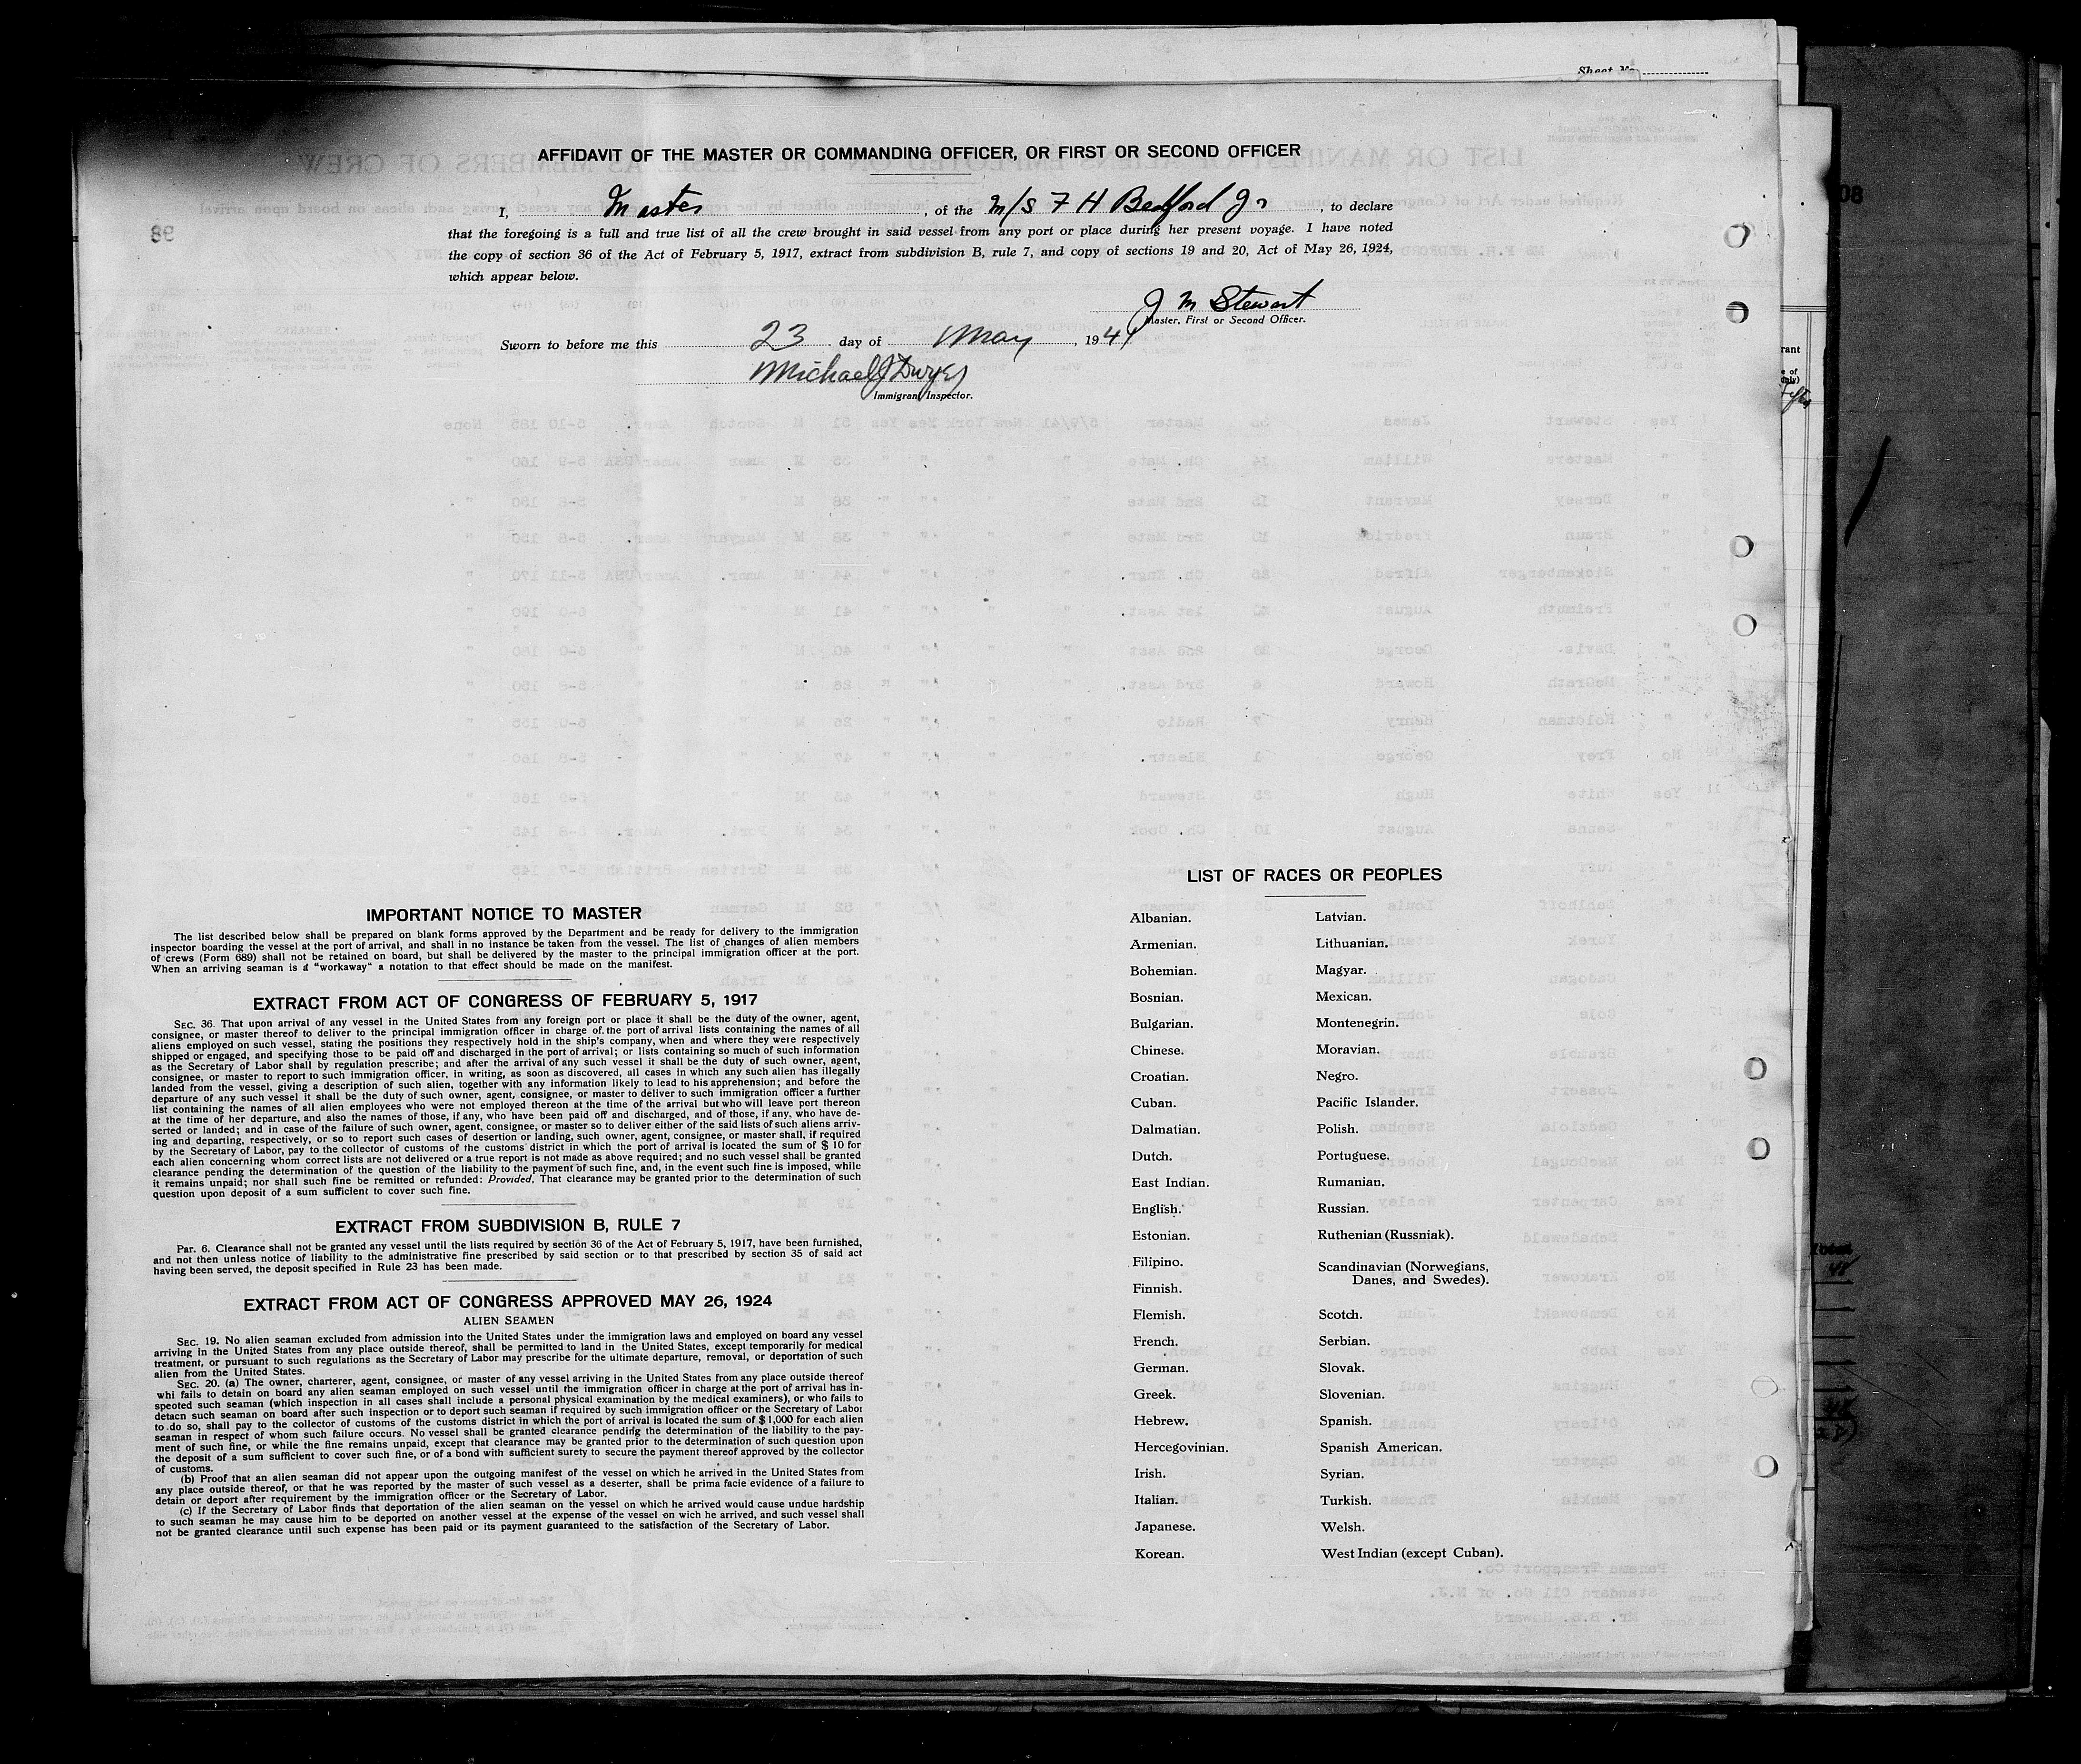 Sheet No.
AFFIDAVIT OF THE MASTER OR COMMANDING OFFICER, OR FIRST OR SECOND OFFICER
I, Master, of the M/S F H Bedford Jr, to declare
that the foregoing is a full and true list of all the crew brought in said vessel from any port or place during her present voyage. I have noted
the copy of section 36 of the Act of February 5, 1917, extract from subdivision B, rule 7, and copy of sections 19 and 20, Act of May 26, 1924,
which appear below.
J M Stewart
Master, First or Second Officer.
Sworn to before me this 23 day of May, 1941
Michael J Dwyer
Immigrant Inspector.
IMPORTANT NOTICE TO MASTER
The list described below shall be prepared on blank forms approved by the Department and be ready for delivery to the immigration
inspector boarding the vessel at the port of arrival, and shall in no instance be taken from the vessel. The list of changes of alien members
of crews (Form 689) shall not be retained on board, but shall be delivered by the master to the principal immigration officer at the port.
When an arriving seaman is a "workaway" a notation to that effect should be made on the manifest.
EXTRACT FROM ACT OF CONGRESS OF FEBRUARY 5, 1917
SEC. 36. That upon arrival of any vessel in the United States from any foreign port or place it shall be the duty of the owner, agent,
consignee, or master thereof to deliver to the principal immigration officer in charge of the port of arrival lists containing the names of all
aliens employed on such vessel, stating the positions they respectively hold in the ship's company, when and where they were respectively
shipped or engaged, and specifying those to be paid off and discharged in the port of arrival; or lists containing so much of such information
as the Secretary of Labor shall by regulation prescribe; and after the arrival of any such vessel it shall be the duty of such owner, agent,
consignee, or master to report to such immigration officer, in writing, as soon as discovered, all cases in which any such alien has illegally
landed from the vessel, giving a description of such alien, together with any information likely to lead to his apprehension; and before the
departure of any such vessel it shall be the duty of such owner, agent, consignee, or master to deliver to such immigration officer a further
list containing the names of all alien employees who were not employed thereon at the time of the arrival but who will leave port thereon
at the time of her departure, and also the names of those, if any, who have been paid off and discharged, and of those, if any, who have de-
serted or landed; and in case of the failure of such owner, agent, consignee, or master so to deliver either of the said lists of such aliens arriv-
ing and departing, respectively, or so to report such cases of desertion or landing, such owner, agent, consignee, or master shall, if required
by the Secretary of Labor, pay to the collector of customs of the customs district in which the port of arrival is located the sum of $ 10 for
each alien concerning whom correct lists are not delivered or a true report is not made as above required; and no such vessel shall be granted
clearance pending the determination of the question of the liability to the payment of such fine, and, in the event such fine is imposed, while
it remains unpaid; nor shall such fine be remitted or refunded: Provided, That clearance may be granted prior to the determination of such
question upon deposit of a sum sufficient to cover such fine.
EXTRACT FROM SUBDIVISION B, RULE 7
Par. 6. Clearance shall not be granted any vessel until the lists required by section 36 of the Act of February 5, 1917, have been furnished,
and not then unless notice of liability to the administrative fine prescribed by said section or to that prescribed by section 35 of said act
having been served, the deposit specified in Rule 23 has been made.
EXTRACT FROM ACT OF CONGRESS APPROVED MAY 26, 1924
ALIEN SEAMEN
SEC. 19. No alien seaman excluded from admission into the United States under the immigration laws and employed on board any vessel
arriving in the United States from any place outside thereof, shall be permitted to land in the United States, except temporarily for medical
treatment, or pursuant to such regulations as the Secretary of Labor may prescribe for the ultimate departure, removal, or deportation of such
alien from the United States.
SEC. 20. (a) The owner, charterer, agent, consignee, or master of any vessel arriving in the United States from any place outside thereof
whi fails to detain on board any alien seaman employed on such vessel until the immigration officer in charge at the port of arrival has in-
speoted such seaman (which inspection in all cases shall include a personal physical examination by the medical examiners), or who fails to
detacn such seaman on board after such inspection or to deport such seaman if required by such immigration officer or the Secretary of Labor
to do so, shall pay to the collector of customs of the customs district in which the port of arrival is located the sum of $ 1,000 for each alien
seaman in respect of whom such failure occurs. No vessel shall be granted clearance pending the determination of the liability to the pay-
ment of such fine, or while the fine remains unpaid, except that clearance may be granted prior to the determination of such question upon
the deposit of a sum sufficient to cover such fine, or of a bond with sufficient surety to secure the payment thereof approved by the collector
of customs.
(b) Proof that an alien seaman did not appear upon the outgoing manifest of the vessel on which he arrived in the United States from
any place outside thereof, or that he was reported by the master of such vessel as a deserter, shall be prima facie evidence of a failure to
detain or deport after requirement by the immigration officer or the Secretary of Labor.
(c) If the Secretary of Labor finds that deportation of the alien seaman on the vessel on which he arrived would cause undue hardship
to such seaman he may cause him to be deported on another vessel at the expense of the vessel on wich he arrived, and such vessel shall
not be granted clearance until such expense has been paid or its payment guaranteed to the satisfaction of the Secretary of Labor.
LIST OF RACES OR PEOPLES
Albanian.
Armenian.
Bohemian.
Bosnian.
Bulgarian.
Chinese.
Croatian.
Cuban.
Dalmatian.
Dutch.
East Indian.
English.
Estonian.
Filipino.
Finnish.
Flemish.
French.
German.
Greek.
Hebrew.
Hercegovinian.
Irish.
Italian.
Japanese.
Korean.
Latvian.
Lithuanian.
Magyar.
Mexican.
Montenegrin.
Moravian.
Negro.
Pacific Islander.
Polish.
Portuguese.
Rumanian.
Russian.
Ruthenian (Russniak).
Scandinavian (Norwegians,
Danes, and Swedes).
Scotch.
Serbian.
Slovak.
Slovenian.
Spanish.
Spanish American.
Syrian.
Turkish.
Welsh.
West Indian (except Cuban).